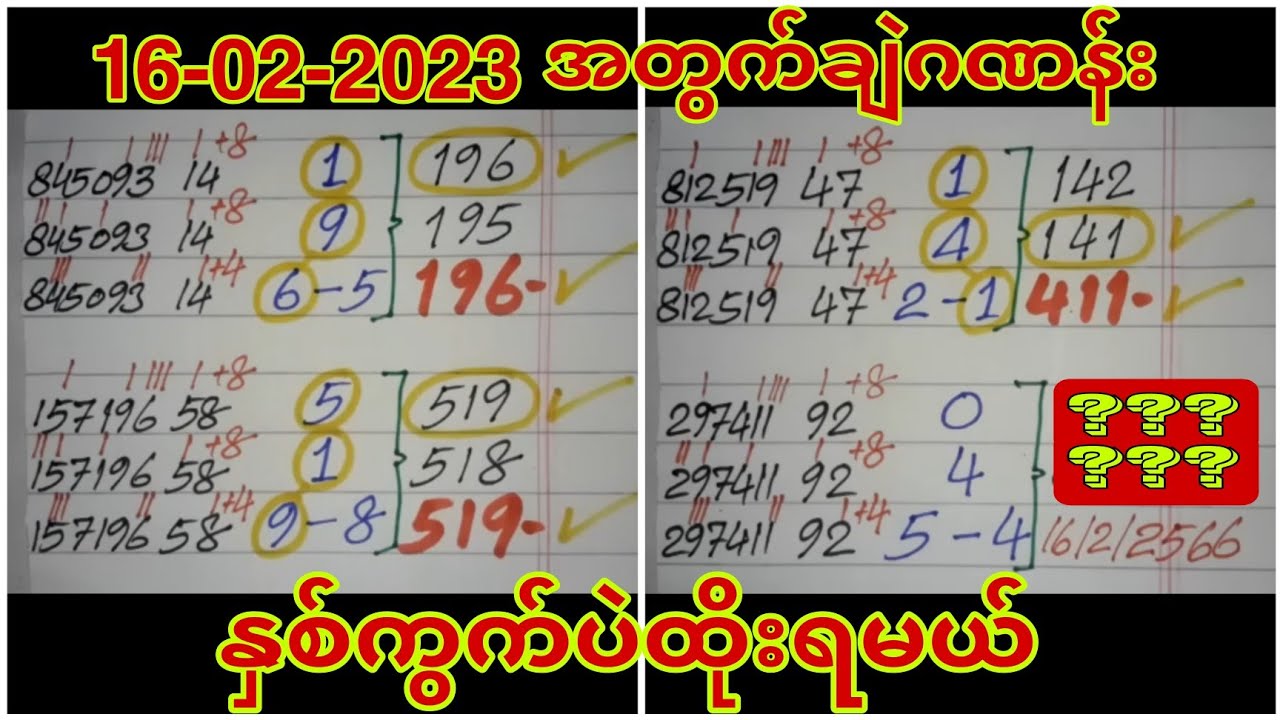 16-02-2023 အတွက်ချဲဂဏန်း
845093 14 +8 1 196
845093 14 +8 9 195
845093 14 +4 6-5 196-
157196 58 +8 5 519
157196 58 +8 1 518
157196 58 +4 9-8 519-
812519 47 +8 1 142
812519 47 +8 4 141
812519 47 +4 2-1 411-
297411 92 +8 0 ???
297411 92 +8 4 ???
297411 92 +4 5-4 16/2/2566
နှစ်ကွက်ပဲထိုးရမယ်